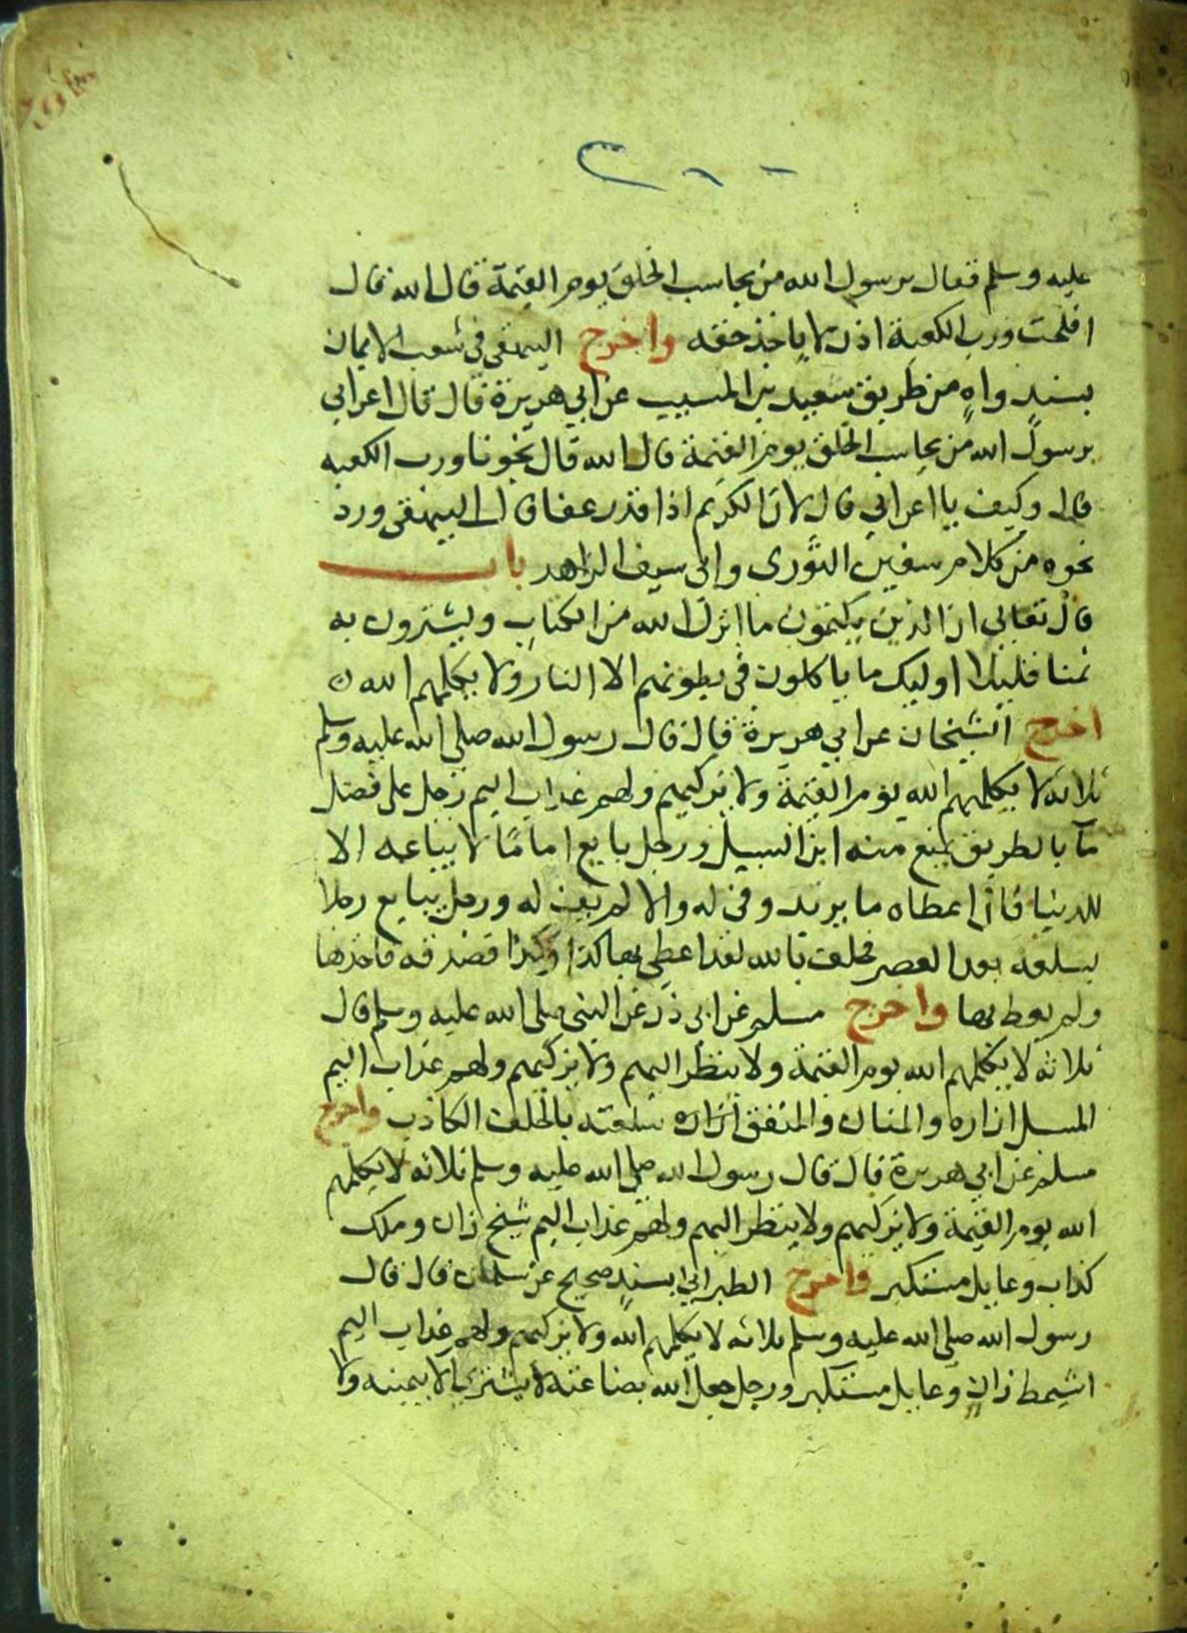 عليه وسلم فقال يرسول الله من يحاسب الخلق يوم القيمة قال الله قال
افلحت ورب الكعبة اذن لا ياخذ حقه واخرج البيهقي في شعب الايمان
بسند واه من طريق سعيد بن المسيب عن ابي هريرة قال قال اعرابي
يرسول الله من يحاسب الخلق يوم القيمة قال الله قال نجونا ورب الكعبه
قال وكيف يا اعرابي قال لان الكريم اذا قدر عفا قال البيهقي ورد
نحوه من كلام سفين الثوري وابي سيف الزاهد باب
قال تعالى ان الذين يكتمون ما انزل الله من الكتاب ويشترون به
ثمنا قليلا اوليك ما ياكلون في بطونهم الا النار ولا يكلمهم الله
اخرج الشيخان عن ابي هريرة قال قال رسول الله صلى الله عليه وسلم
ثلاثة لا يكلمهم الله يوم القيمة ولا يزكيهم ولهم عذاب اليم رجل على فضل
ما بالطريق يمنع منه ابن السبيل ورجل بايع اماما لا يبايعه الا
للدنيا فان اعطاه ما يريد وفى له والا لم يف له ورجل يبايع رجلا
بسلعة بعد العصر فحلف بالله لقد اعطي بها كذا وكذا فصدقه فاخذها
ولم يعط بها واخرج مسلم عن ابي ذر عن النبي صلى الله عليه وسلم قال
ثلاثة لا يكلمهم الله يوم القيمة ولا ينظر اليهم ولا يزكيهم ولهم عذاب اليم
المسبل ازاره والمنان والمنفق سلعته بالحلف الكاذب واخرج
مسلم عن ابي هريرة قال قال رسول الله صلى الله عليه وسلم ثلاثه لا يكلمهم
الله يوم القيمة ولا يزكيهم ولا ينظر اليهم ولهم عذاب اليم شيخ زان وملك
كذاب وعايل مستكبر واخرج الطبراني بسند صحيح عن سلمان قال قال
رسول الله صلى الله عليه وسلم ثلاثه لا يكلمهم الله ولا يزكيهم ولهم عذاب اليم
اشيمط زان وعايل مستكبر ورجل جعل الله بضاعته لا يشتري الا بيمينه ولا